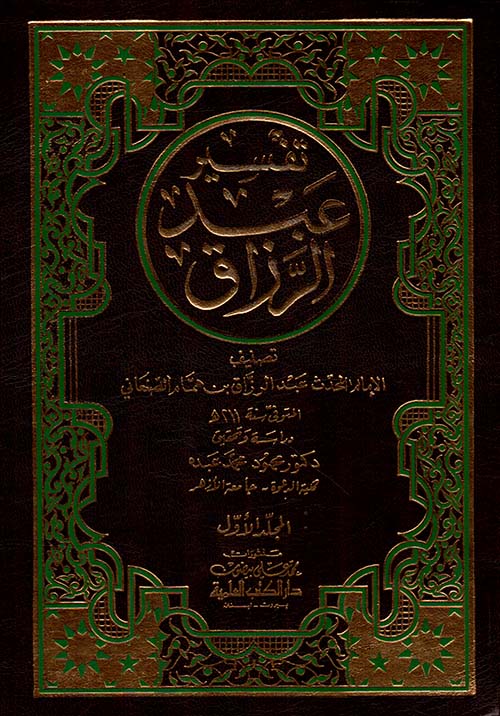 تفسير
عبد
الرزاق
تصنيف
الإمام المحدث عبد الرزاق بن همام الصنعاني
المتوفى سنة ٢١١ هـ
دراسة وتحقيق
دكتور محمود محمد عبده
كلية الدعوة - جامعة الأزهر
المجلد الأول
منشورات
محمد علي بيضون
دار الكتب العلمية
بيروت - لبنان